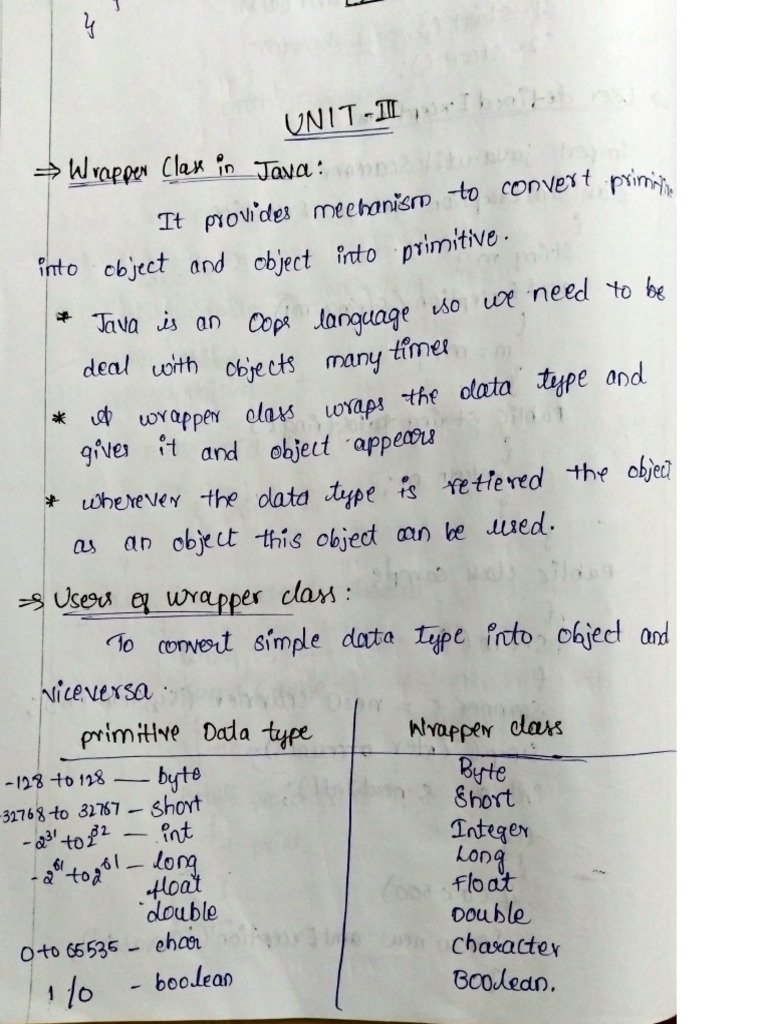 }
UNIT-III
⇒ Wrapper Class in Java:
It provides mechanism to convert primitive
into object and object into primitive.
* Java is an Oops language so we need to be
deal with objects many times
* A wrapper class wraps the data type and
gives it and object appears
* wherever the data type is retiered the object
as an object this object can be used.
⇒ Users of wrapper class:
To convert simple data type into object and
viceversa.
primitive Data type | Wrapper class
-128 to 128 — byte | Byte
-32768 to 32767 - short | Short
-2^31 to 2^32 — int | Integer
-2^61 to 2^61 - long | Long
float | Float
double | Double
0 to 65535 - char | Character
1/0 - boolean | Boolean.